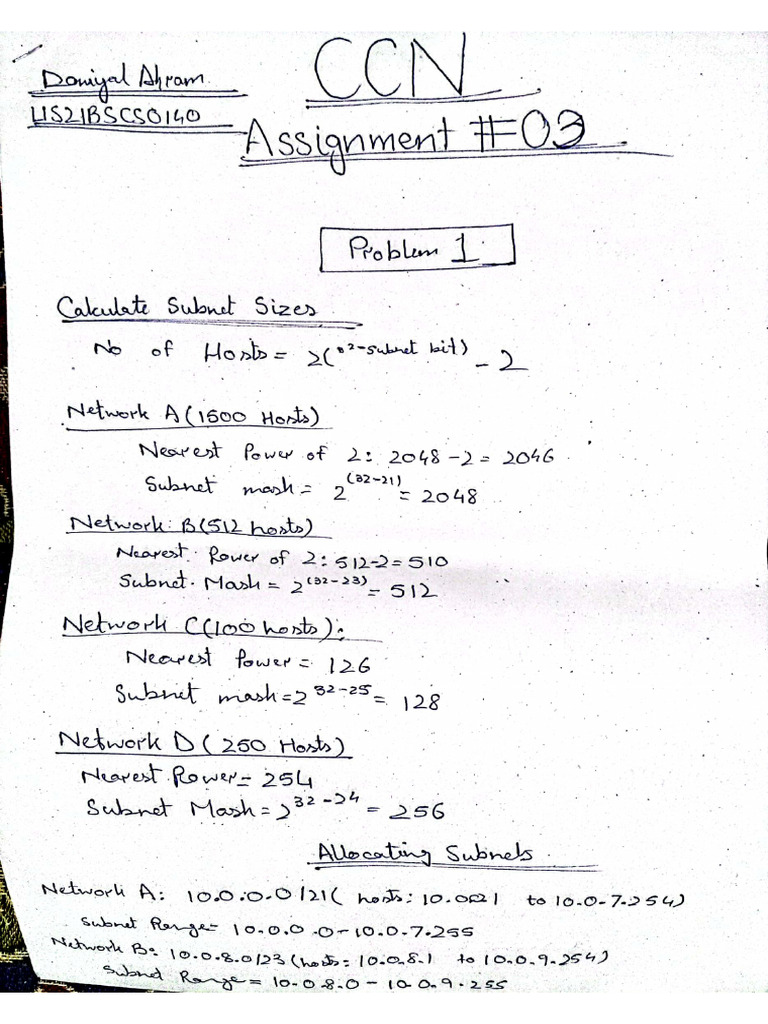 Daniyal Akram
CCN
U1S21BSCS0140
Assignment #03
Problem 1
Calculate Subnet Sizes
No of Hosts = 2(32-subnet bit) - 2
Network A (1500 Hosts)
Nearest Power of 2: 2048 - 2 = 2046
Subnet mash = 2(32-21) = 2048
Network B (512 hosts)
Nearest Power of 2: 512-2 = 510
Subnet Mash = 2(32-23) = 512
Network C (100 hosts):
Nearest Power = 126
Subnet mash = 2 32-25 = 128
Network D (250 Hosts)
Nearest Power = 254
Subnet Mash = 2 32-24 = 256
Allocating Subnets
Network A: 10.0.0.0/21 ( hosts: to 10.0.7.254)
Subnet Range = 10.0.0.0 - 10.0.7.255
Network B: 10.0.8.0/23 (hosts: 10.0.8.1 to 10.0.9.254)
Subnet Range = 10.0.8.0 - 10.0.9.255